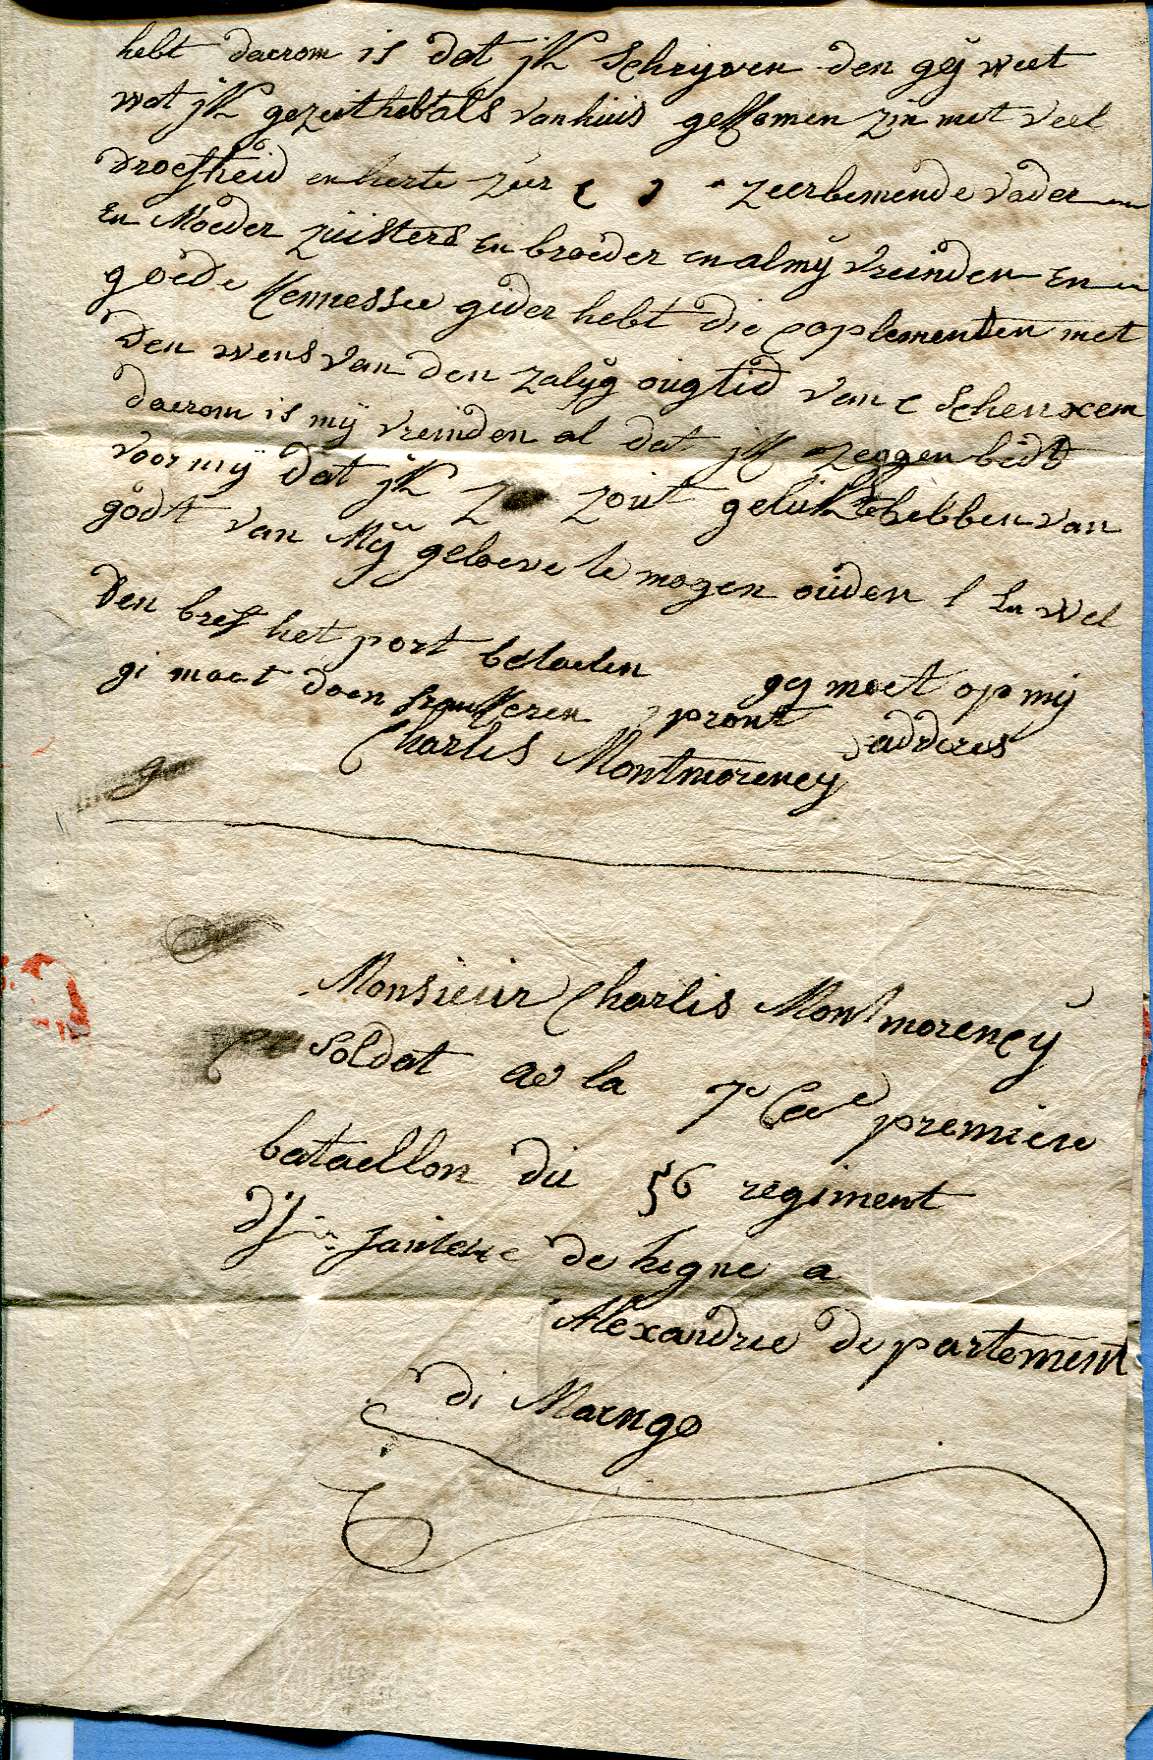 hebt daerom is dat jk Schryven den gÿ weet
wat jk gezeit hebt als van huis gekomen zin met veel
droefheid en herte zeer zeer bemende vader
En Moeder zuisters En broeder en al mÿ vreinden En
goede kennessee gider hebt die coplementen met
den wens van den zalÿg ougtid van
daerom is mÿ vreinden al dat jk zeggen bidt
voor mÿ dat jk zout geluk te hebben van
godt van Mÿ geloeve te mogen ouden wel
den bref het port betaelen gy moet op mÿ
gi moet doen frankeren pront adderes
Charlis Montmorencÿ
Monsieur Charlis Montmorencÿ
Soldat de la 7e Cee premiere
bataellon du 56 regiment
d'in fanterie de ligne a
Alexandrie departement
di Marngo